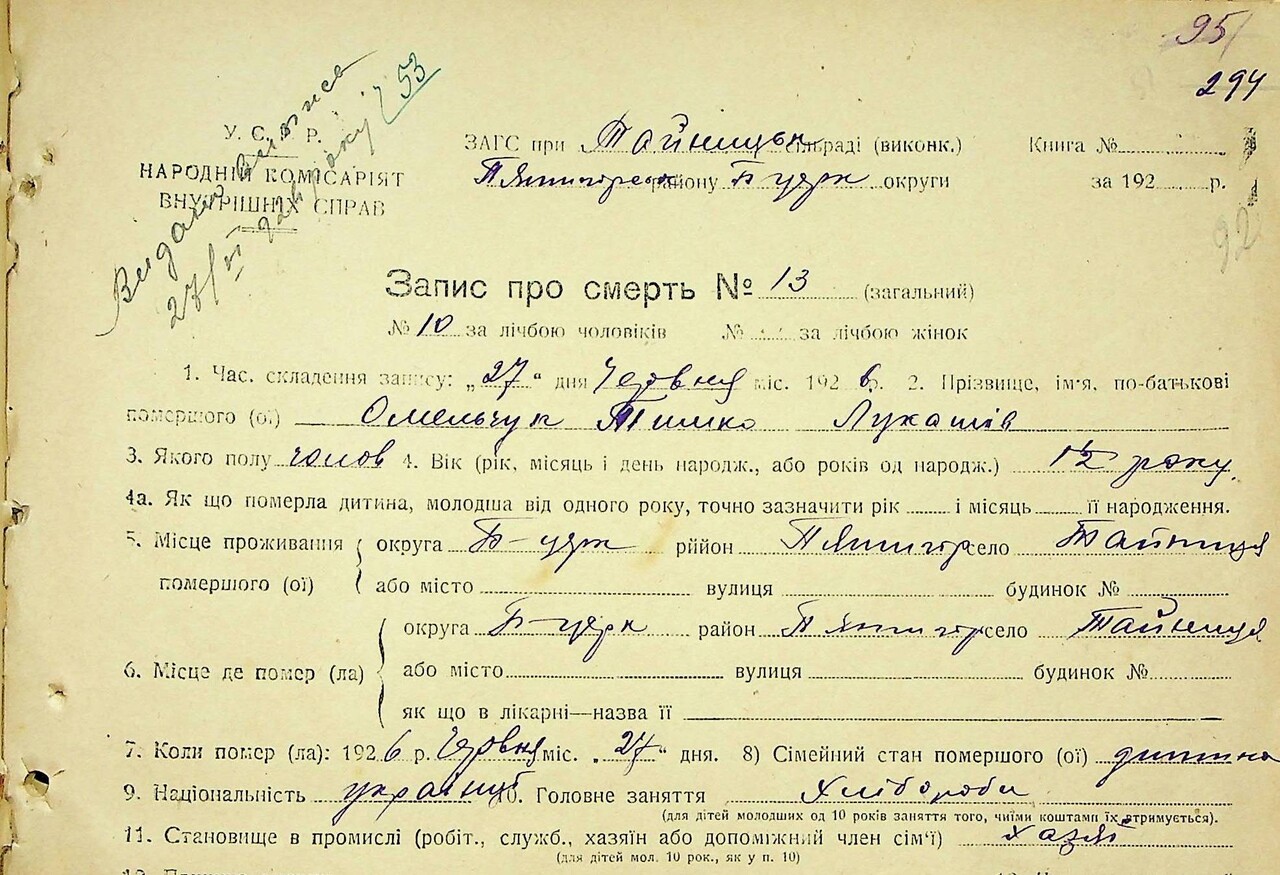 95
294
53
У. С. Р. Р.
НАРОДНІЙ КОМІСАРІЯТ
ВНУТРІШНІХ СПРАВ
ЗАГС при Тайницьк сільраді (виконк.) Книга №
Пятигорськ району Б церк округи за 192 р.
92
Запис про смерть № 13 (загальний)
№ 10 за лічбою чоловіків № за лічбою жінок
1. Час. складення запису: „27" дня Червня міс. 1926 р. 2. Прізвище, ім'я, по-батькові
помершого (ої) Омельчук Тимко Лукашів
3. Якого полу чолов 4. Вік (рік, місяць і день народж., або років од народж.) 12 року
4а. Як що померла дитина, молодша від одного року, точно зазначити рік і місяць її народження.
5. Місце проживання округа Б-церк рйійон Пятигор село Тайниця
помершого (ої) або місто вулиця будинок №
округа Б-церк район Пятигор село Тайниця
6. Місце де помер (ла) або місто вулиця будинок №
як що в лікарні—назва її
7. Коли помер (ла): 1926 р. Червня міс. „27" дня. 8) Сімейний стан помершого (ої) дитина
9. Національність українц 10. Головне заняття Хлібороби
(для дітей молодших од 10 років заняття того, чиїми коштами їх втримується).
11. Становище в промислі (робіт., служб., хазяїн або допоміжний член сім'ї) хазяї
(для дітей мол. 10 рок., як у п. 10)